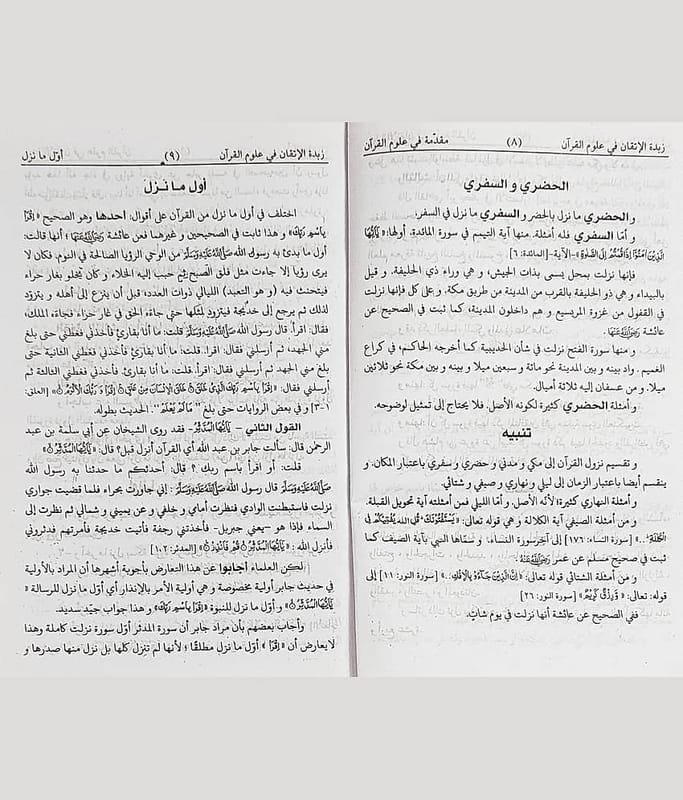 زبدة الإتقان في علوم القرآن (٨) مقدّمة في علوم القرآن
الحضري و السفري
و الحضري ما نزل بالحضر و السفري ما نزل في السفر.
و أمّا السفري فله أمثلة. منها آية التيمم في سورة المائدة. أولها: ﴿يَٰٓأَيُّهَا
الَّذِينَ آمَنُوٓا إِذَا قُمْتُمْ إِلَى الصَّلَوٰةِ﴾-الآية- [المائدة: ٦]
فإنها نزلت بمحل يسمى بذات الجيش، و هي وراء ذي الحليفة. و قيل
بالبيداء و هي ذو الحليفة بالقرب من المدينة من طريق مكة. و على كل فإنها نزلت
في القفول من غزوة المريسيع و هم داخلون المدينة، كما ثبت في الصحيح عن
عائشة رَضِيَاللَّهُعَنْهَا.
و منها سورة الفتح نزلت في شأن الحديبية كما أخرجه الحاكم، في كراع
الغميم. واد بينه و بين المدينة نحو مائة و سبعين ميلا و بينه و بين مكة نحو ثلاثين
ميلا. و من عسفان إليه ثلاثة أميال.
و أمثلة الحضري كثيرة لكونه الأصل. فلا يحتاج إلى تمثيل لوضوحه.
تنبيه
و تقسيم نزول القرآن إلى مكي و مدني و حضري و سفري باعتبار المكان. و
ينقسم أيضا باعتبار الزمان إلى ليلي و نهاري و صيفي و شتائي.
و أمثلة النهاري كثيرة؛ لأنه الأصل. و أمّا الليلي فمن أمثلته آية تحويل القبلة.
و من أمثلة الصيفي آية الكلالة و هي قوله تعالى: ﴿يَسْتَفْتُونَكَ قُلِ اللَّهُ يُفْتِيكُمْ فِي
الْكَلَٰلَةِ..﴾ [سورة النساء: ١٧٦] إلى آخر سورة النساء. و سمّاها النبي بآية الصيف كما
ثبت في صحيح مسلم عن عمر رَضِيَاللَّهُعَنْهُ.
و من أمثلة الشتائي قوله تعالى: ﴿إِنَّ الَّذِينَ جَآءُو بِالْإِفْكِ..﴾ [سورة النور: ١١] إلى
قوله: تعالى: ﴿وَّرِزْقٌ كَرِيمٌ﴾ [سورة النور: ٢٦]
ففي الصحيح عن عائشة أنها نزلت في يوم شاتٍ.
زبدة الإتقان في علوم القرآن (٩) أوّل ما نزل
أول ما نزل
اختلف في أول ما نزل من القرآن على أقوال: أحدها و هو الصحيح ﴿اقْرَأْ
بِاسْمِ رَبِّكَ﴾ و هذا ثابت في الصحيحين و غيرهما فعن عائشة رَضِيَاللَّهُعَنْهَا أنها قالت:
أول ما بدئ به رسول الله صَلَّىاللَّهُعَلَيْهِوَسَلَّمَ من الوحي الرؤيا الصالحة في النوم. فكان لا
يرى رؤيا إلا جاءت مثل فلق الصبح ثم حبب إليه الخلاء و كان يخلو بغار حراء
فيتحنث فيه (و هو التعبد) الليالي ذوات العدد، قبل أن ينزع إلى أهله و يتزوّد
لذلك ثم يرجع إلى خديجة فيتزود لمثلها حتى جاءه الحق في غار حراء فجاءه الملك،
فقال: اقرأ. قال رسول الله صَلَّىاللَّهُعَلَيْهِوَسَلَّمَ: قلت: ما أنا بقارئ فأخذني فغطني حتى بلغ
مني الجهد، ثم أرسلني فقال: اقرأ. قلت: ما أنا بقارئ فأخذني فغطني الثانية حتى
بلغ مني الجهد ثم أرسلني فقال: اقرأ. قلت: ما أنا بقارئ فأخذني فغطني الثالثة ثم
أرسلني فقال: ﴿اقْرَأْ بِاسْمِ رَبِّكَ الَّذِي خَلَقَ خَلَقَ الْإِنْسَانَ مِنْ عَلَقٍ اقْرَأْ وَ رَبُّكَ الْأَكْرَمُ﴾ [العلق:
١-٣] و في بعض الروايات حتى بلغ "مَا لَمْ يَعْلَمْ". الحديث بطوله.
القول الثاني - ﴿يَٰٓأَيُّهَا الْمُدَّثِّرُ﴾- فقد روى الشيخان عن أبي سلمة بن عبد
الرحمٰن قال: سألت جابر بن عبد الله أي القرآن أنزل قبل؟ قال: ﴿يَٰٓأَيُّهَا الْمُدَّثِّرُ﴾
قلت: أو اقرأ باسم ربك؟ قال: أحدثكم ما حدثنا به رسول الله
صَلَّىاللَّهُعَلَيْهِوَسَلَّمَ قال رسول الله صَلَّىاللَّهُعَلَيْهِوَسَلَّمَ: إني جاورت بحراء فلما قضيت جواري
نزلت فاستبطنت الوادي فنظرت أمامي و خلفي و عن يميني و شمالي ثم نظرت إلى
السماء فإذا هو -يعني جبريل- فأخذتني رجفة فأتيت خديجة فأمرتهم فدثروني
فأنزل الله: ﴿يَٰٓأَيُّهَا الْمُدَّثِّرُ قُمْ فَأَنْذِرْ﴾ [المدثر: ١،٢]
لكن العلماء أجابوا عن هذا التعارض بأجوبة أشهرها أن المراد بالأولية
في حديث جابر أولية مخصوصة و هي أولية الأمر بالإنذار أي أوّل ما نزل للرسالة ﴿
يَٰٓأَيُّهَا الْمُدَّثِّرُ﴾ و أوّل ما نزل للنبوة ﴿اقْرَأْ بِاسْمِ رَبِّكَ﴾ و هذا جواب جيّد سديد.
و أجاب بعضهم بأن مراد جابر أن سورة المدثر أوّل سورة نزلت كاملة وهذا
لا يعارض أن ﴿اقْرَأْ﴾ أوّل ما نزل مطلقًا؛ لأنها لم تنزل كلها بل نزل منها صدرها و